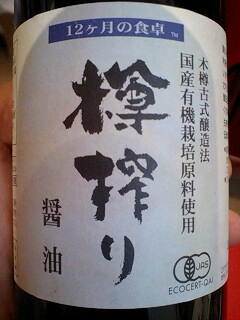 12ヶ月の食卓™
木樽古式醸造法
国産有機栽培原料使用
樽搾り
醤油
JAS
ECOCERT-QAI